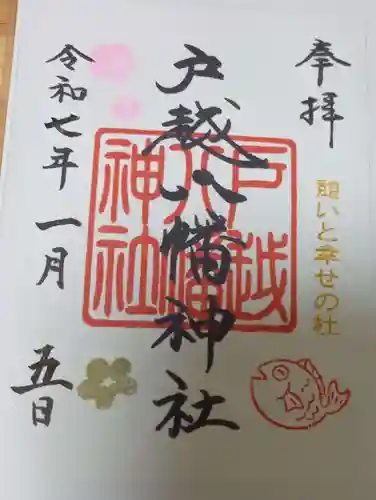 奉拝
願いと幸せの社
戸越八幡神社
戸越
八幡
神社
令和七年一月五日